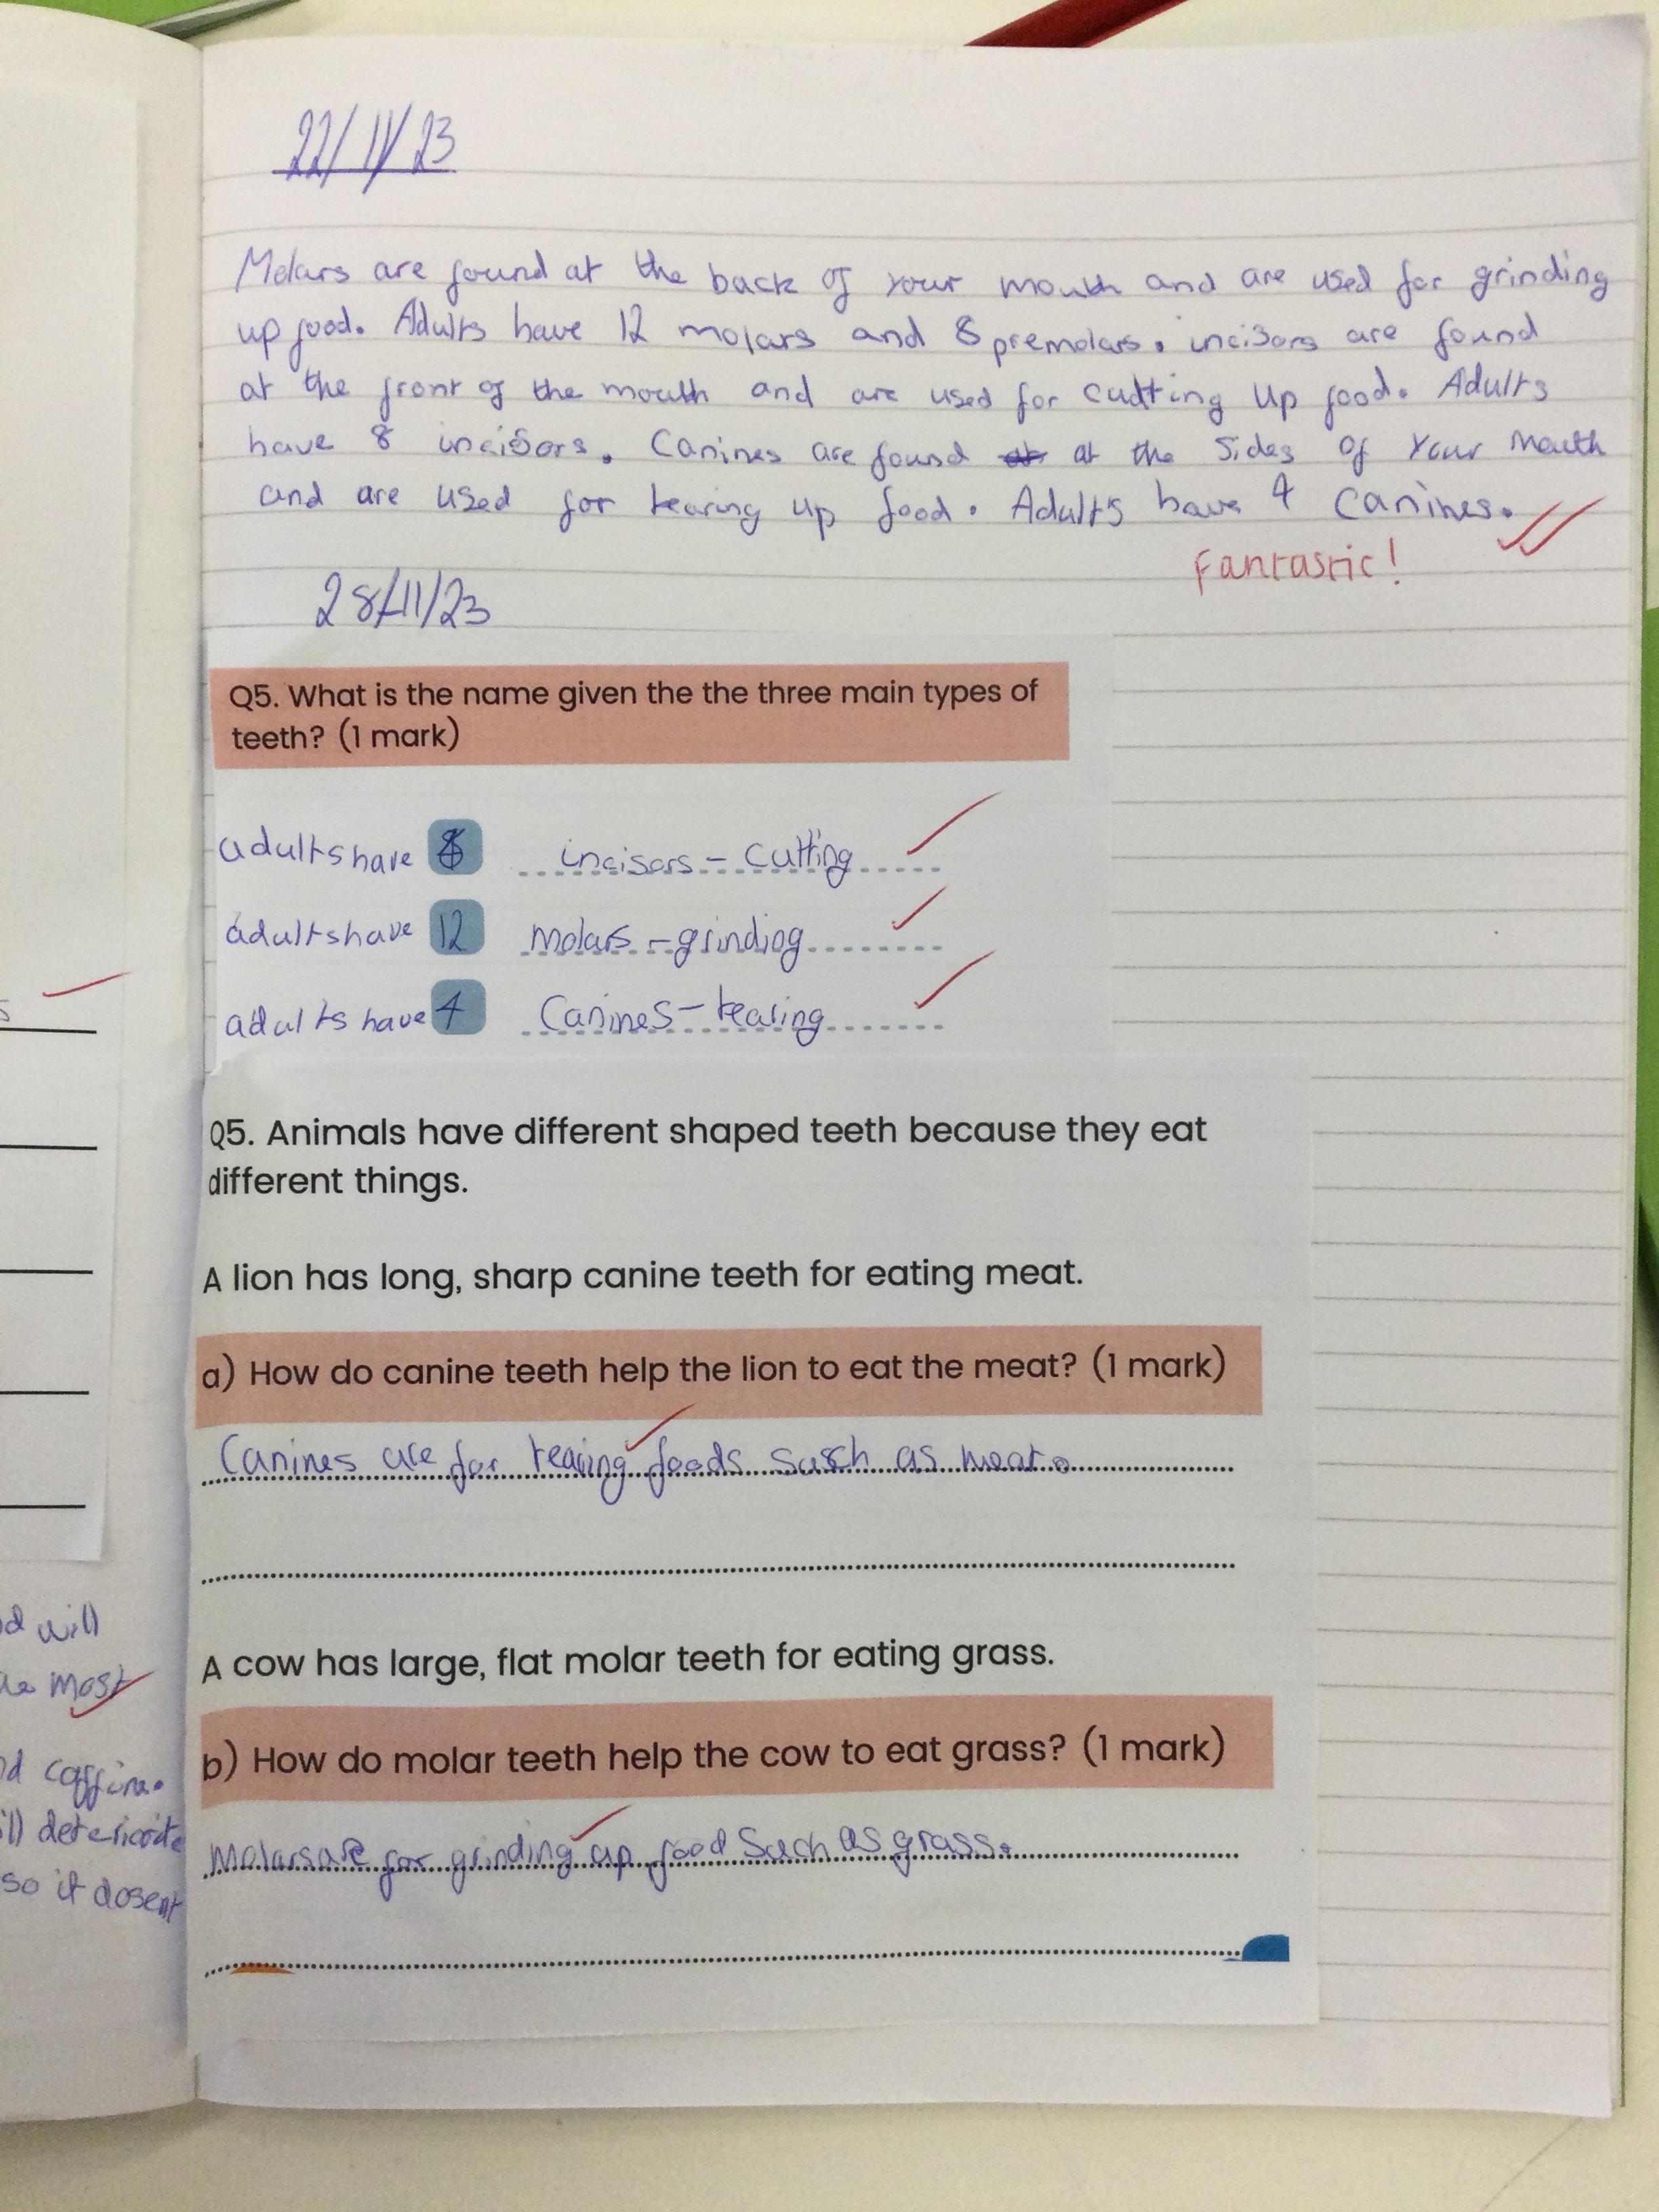 22/11/23
Molars are found at the back of your mouth and are used for grinding
up food. Adults have 12 molars and 8 premolars. incisors are found
at the front of the mouth and are used for cutting up food. Adults
have 8 incisors. Canines are found at the sides of your mouth
and are used for tearing up food. Adults have 4 canines.
Fantastic!
28/11/23
Q5. What is the name given the the three main types of
teeth? (1 mark)
adults have 8 incisors - cutting
adults have 12 molars - grinding
adults have 4 Canines - tearing
Q5. Animals have different shaped teeth because they eat
different things.
A lion has long, sharp canine teeth for eating meat.
a) How do canine teeth help the lion to eat the meat? (1 mark)
Canines are for tearing foods such as meat.
A cow has large, flat molar teeth for eating grass.
b) How do molar teeth help the cow to eat grass? (1 mark)
Molars are for grinding up food such as grass.
will
most
caffine.
deteriorate
so it dosent